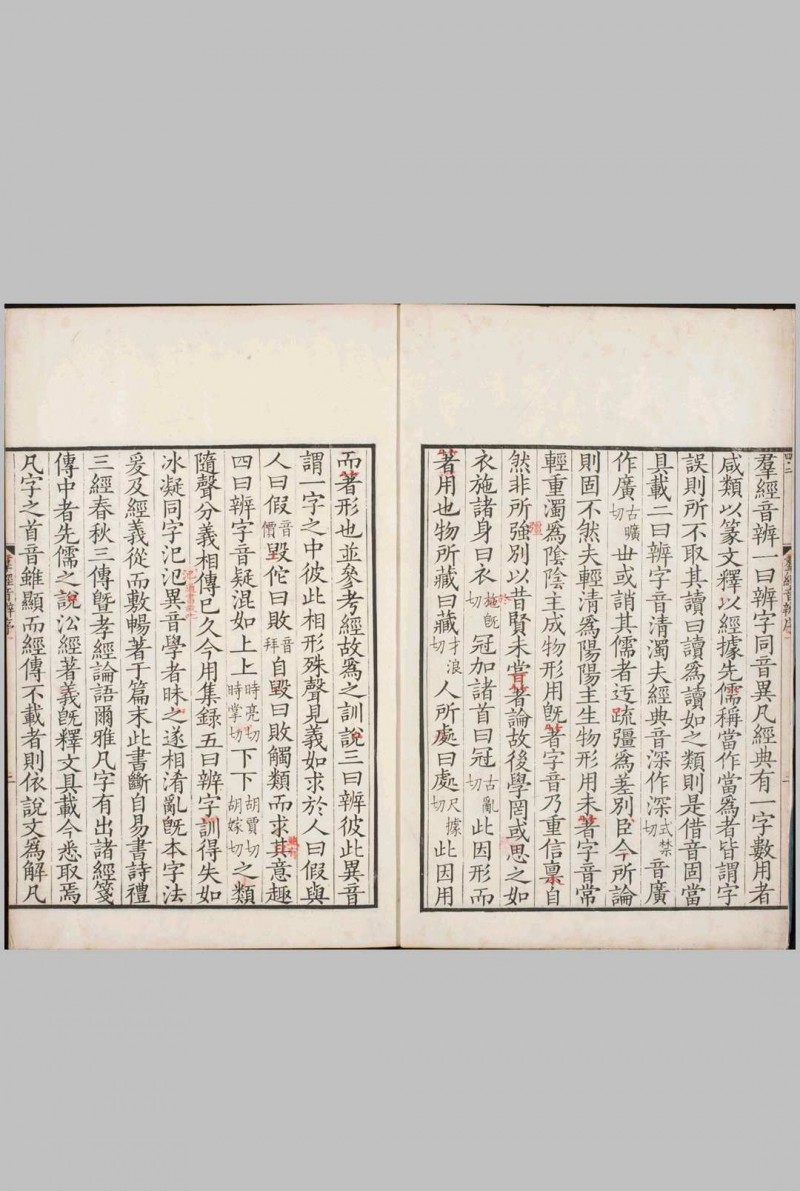 羣經音辨一曰辨字同音異凡經典有一字數用者
咸類以篆文釋以經據先儒稱當作當爲者皆謂字
誤則所不取其讀曰讀爲讀如之類則是借音固當
具載二曰辨字音清濁夫經典音深作深式禁切音廣
作廣古曠切世或誚其儒者迂疏彊爲差別臣今所論
則固不然夫輕清爲陽陽主生物形用未著字音常
輕重濁爲陰陰主成物形用旣著字音乃重信稟自
然非所強別以昔賢未嘗著論故後學罔或思之如
衣施諸身曰衣施旣切冠加諸首曰冠古亂切此因形而
著用也物所藏曰藏才浪切人所處曰處尺據切此因用
而著形也並參考經故爲之訓說三曰辨彼此異音
謂一字之中彼此相形殊聲見義如求於人曰假與
人曰假音價毀佗曰敗音拜自毀曰敗觸類而求其意趣
四曰辨字音疑混如上上時亮切時掌切下下胡賈切胡嫁切之類
隨聲分義相傳已久今用集錄五曰辨字訓得失如
冰凝同字汜汜異音學者昧之遂相淆亂旣本字法
爰及經義從而敷暢著于篇末此書斷自易書詩禮
三經春秋三傳曁孝經論語爾雅凡字有出諸經箋
傳中者先儒之說㳂經著義旣釋文具載今悉取焉
凡字之首音雖顯而經傳不載者則依說文爲解凡